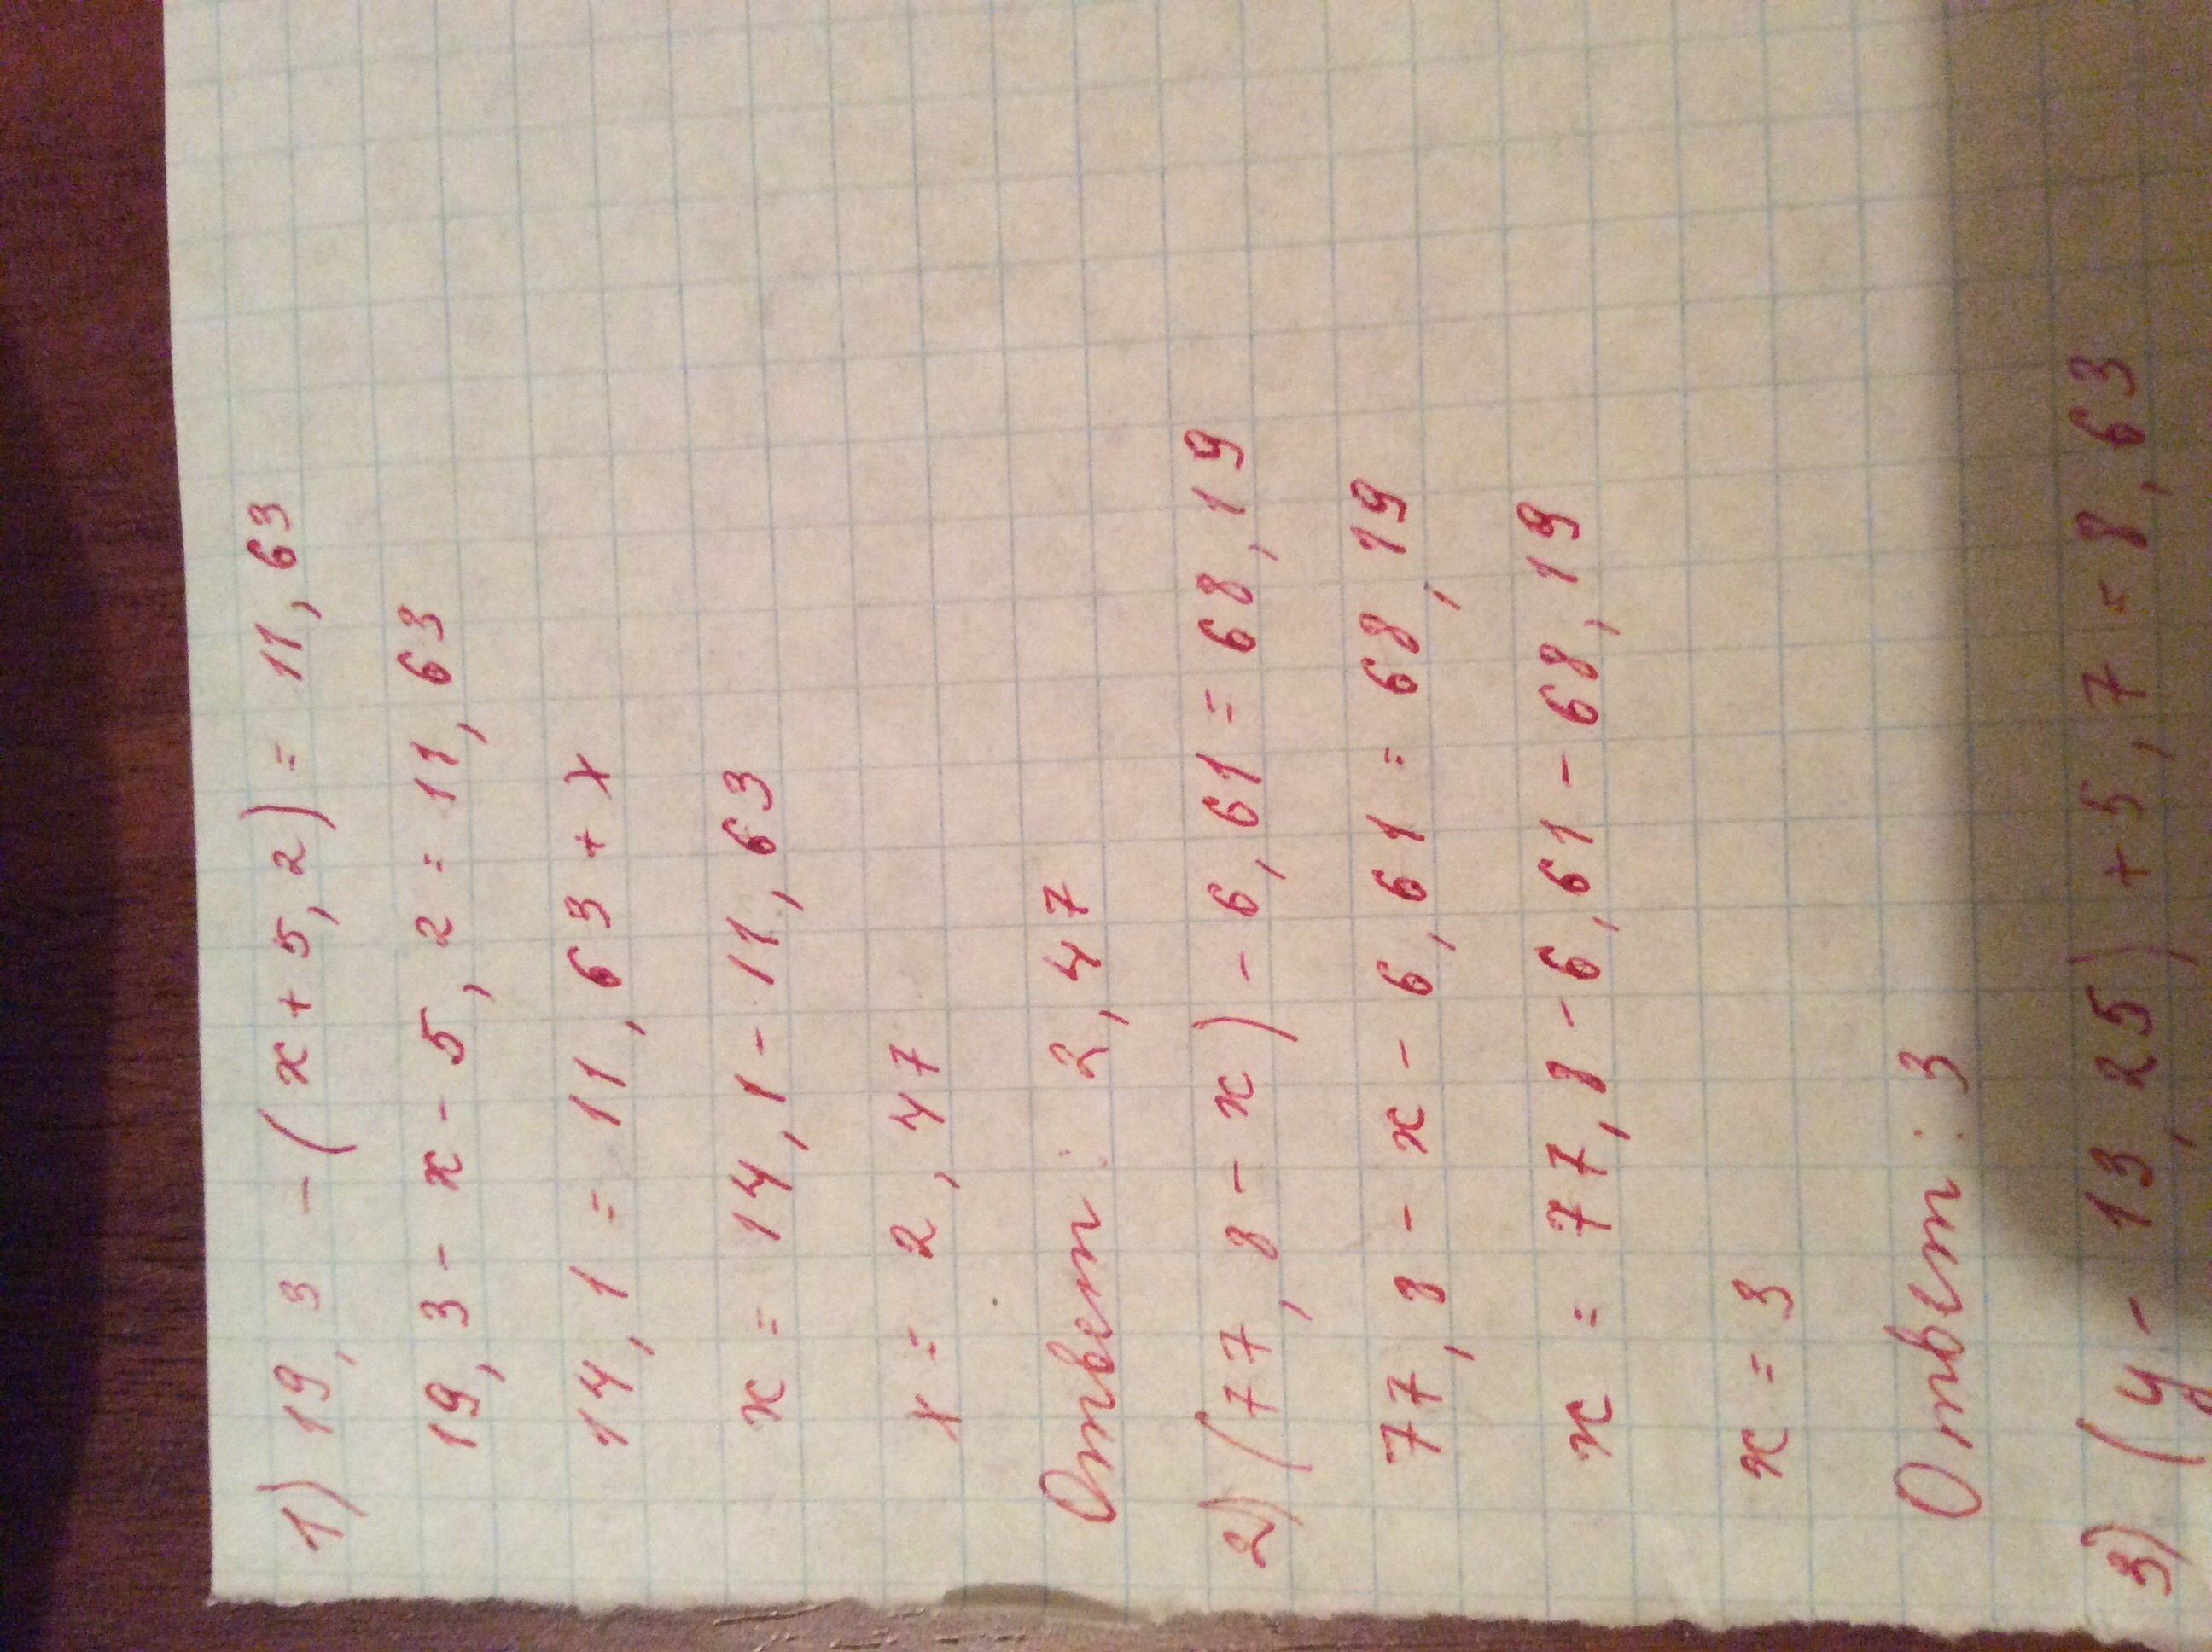 1) 19,3 - (x + 5,2) = 11,63
19,3 - x - 5,2 = 11,63
14,1 = 11,63 + x
x = 14,1 - 11,63
x = 2,47
Ответ: 2,47
2) (77,8 - x) - 6,61 = 68,19
77,8 - x - 6,61 = 68,19
x = 77,8 - 6,61 - 68,19
x = 3
Ответ: 3
3) (y - 13,25) + 5,7 = 8,63